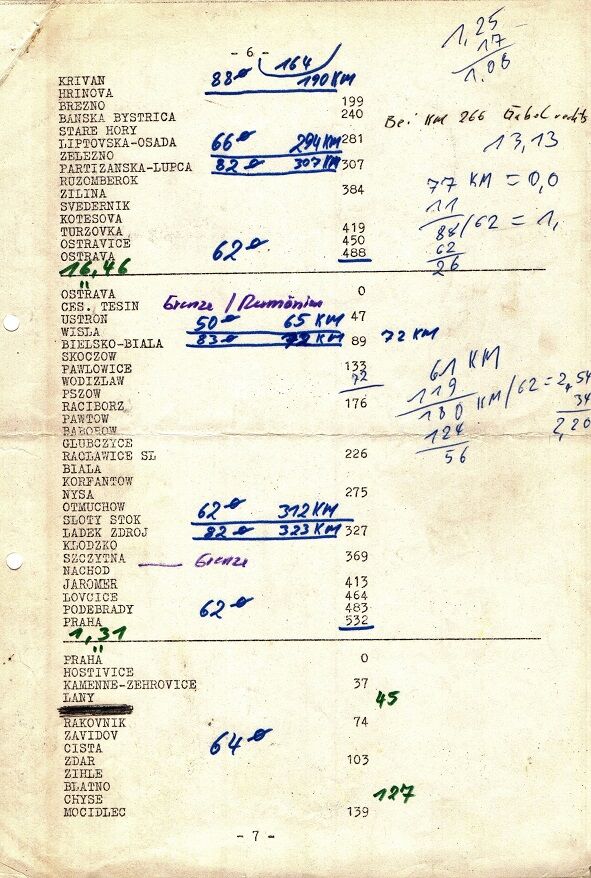 - 6 -
164
88ø 190 KM
1,25
17
1,08
KRIVAN
HRINOVA
BREZNO 199
BANSKA BYSTRICA 240
Bei KM 266 Gabel rechts
STARE HORY
LIPTOVSKA-OSADA 66ø 294 KM 281
13,13
ZELEZNO
PARTIZANSKA-LUPCA 82ø 307 KM 307
RUZOMBEROK
ZILINA 384
77 KM = 0,0
SVEDERNIK
11
KOTESOVA
TURZOVKA 419
88/62 = 1,
OSTRAVICE 62ø 450
62
OSTRAVA 488
26
16,46
OSTRAVA 0
CES. TESIN Grenze / Rumänien
USTRON 50ø 65 KM 47
WISLA
72 KM
BIELSKO-BIALA 83ø 72 KM 89
SKOCZOW
PAWLOWICE 133
61 KM
WODIZLAW 72
119
PSZOW
180 KM/62 = 2,54
RACIBORZ 176
34
PAWTOW
124
2,20
BABOROW
56
GLUBCZYCE
RACLAWICE SL 226
BIALA
KORFANTOW
NYSA 275
OTMUCHOW 62ø 312 KM
SLOTY STOK
LADEK ZDROJ 82ø 323 KM 327
KLODZKO
SZCZYTNA Grenze 369
NACHOD
JAROMER 413
LOVCICE 464
PODEBRADY 62ø 483
PRAHA 532
1,31
PRAHA 0
HOSTIVICE
KAMENNE-ZEHROVICE 37
LANY 45
RAKOVNIK 74
ZAVIDOV
CISTA 64ø
ZDAR 103
ZIHLE
BLATNO
CHYSE 127
MOCIDLEC 139
- 7 -